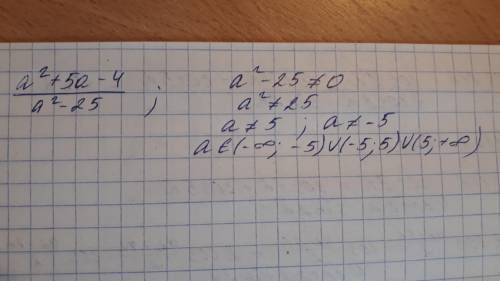 a²+5a-4 / a²-25 ;
a²-25≠0
a²≠25
a≠5 ; a≠-5
a∈(-∞; -5)∪(-5;5)∪(5;+∞)